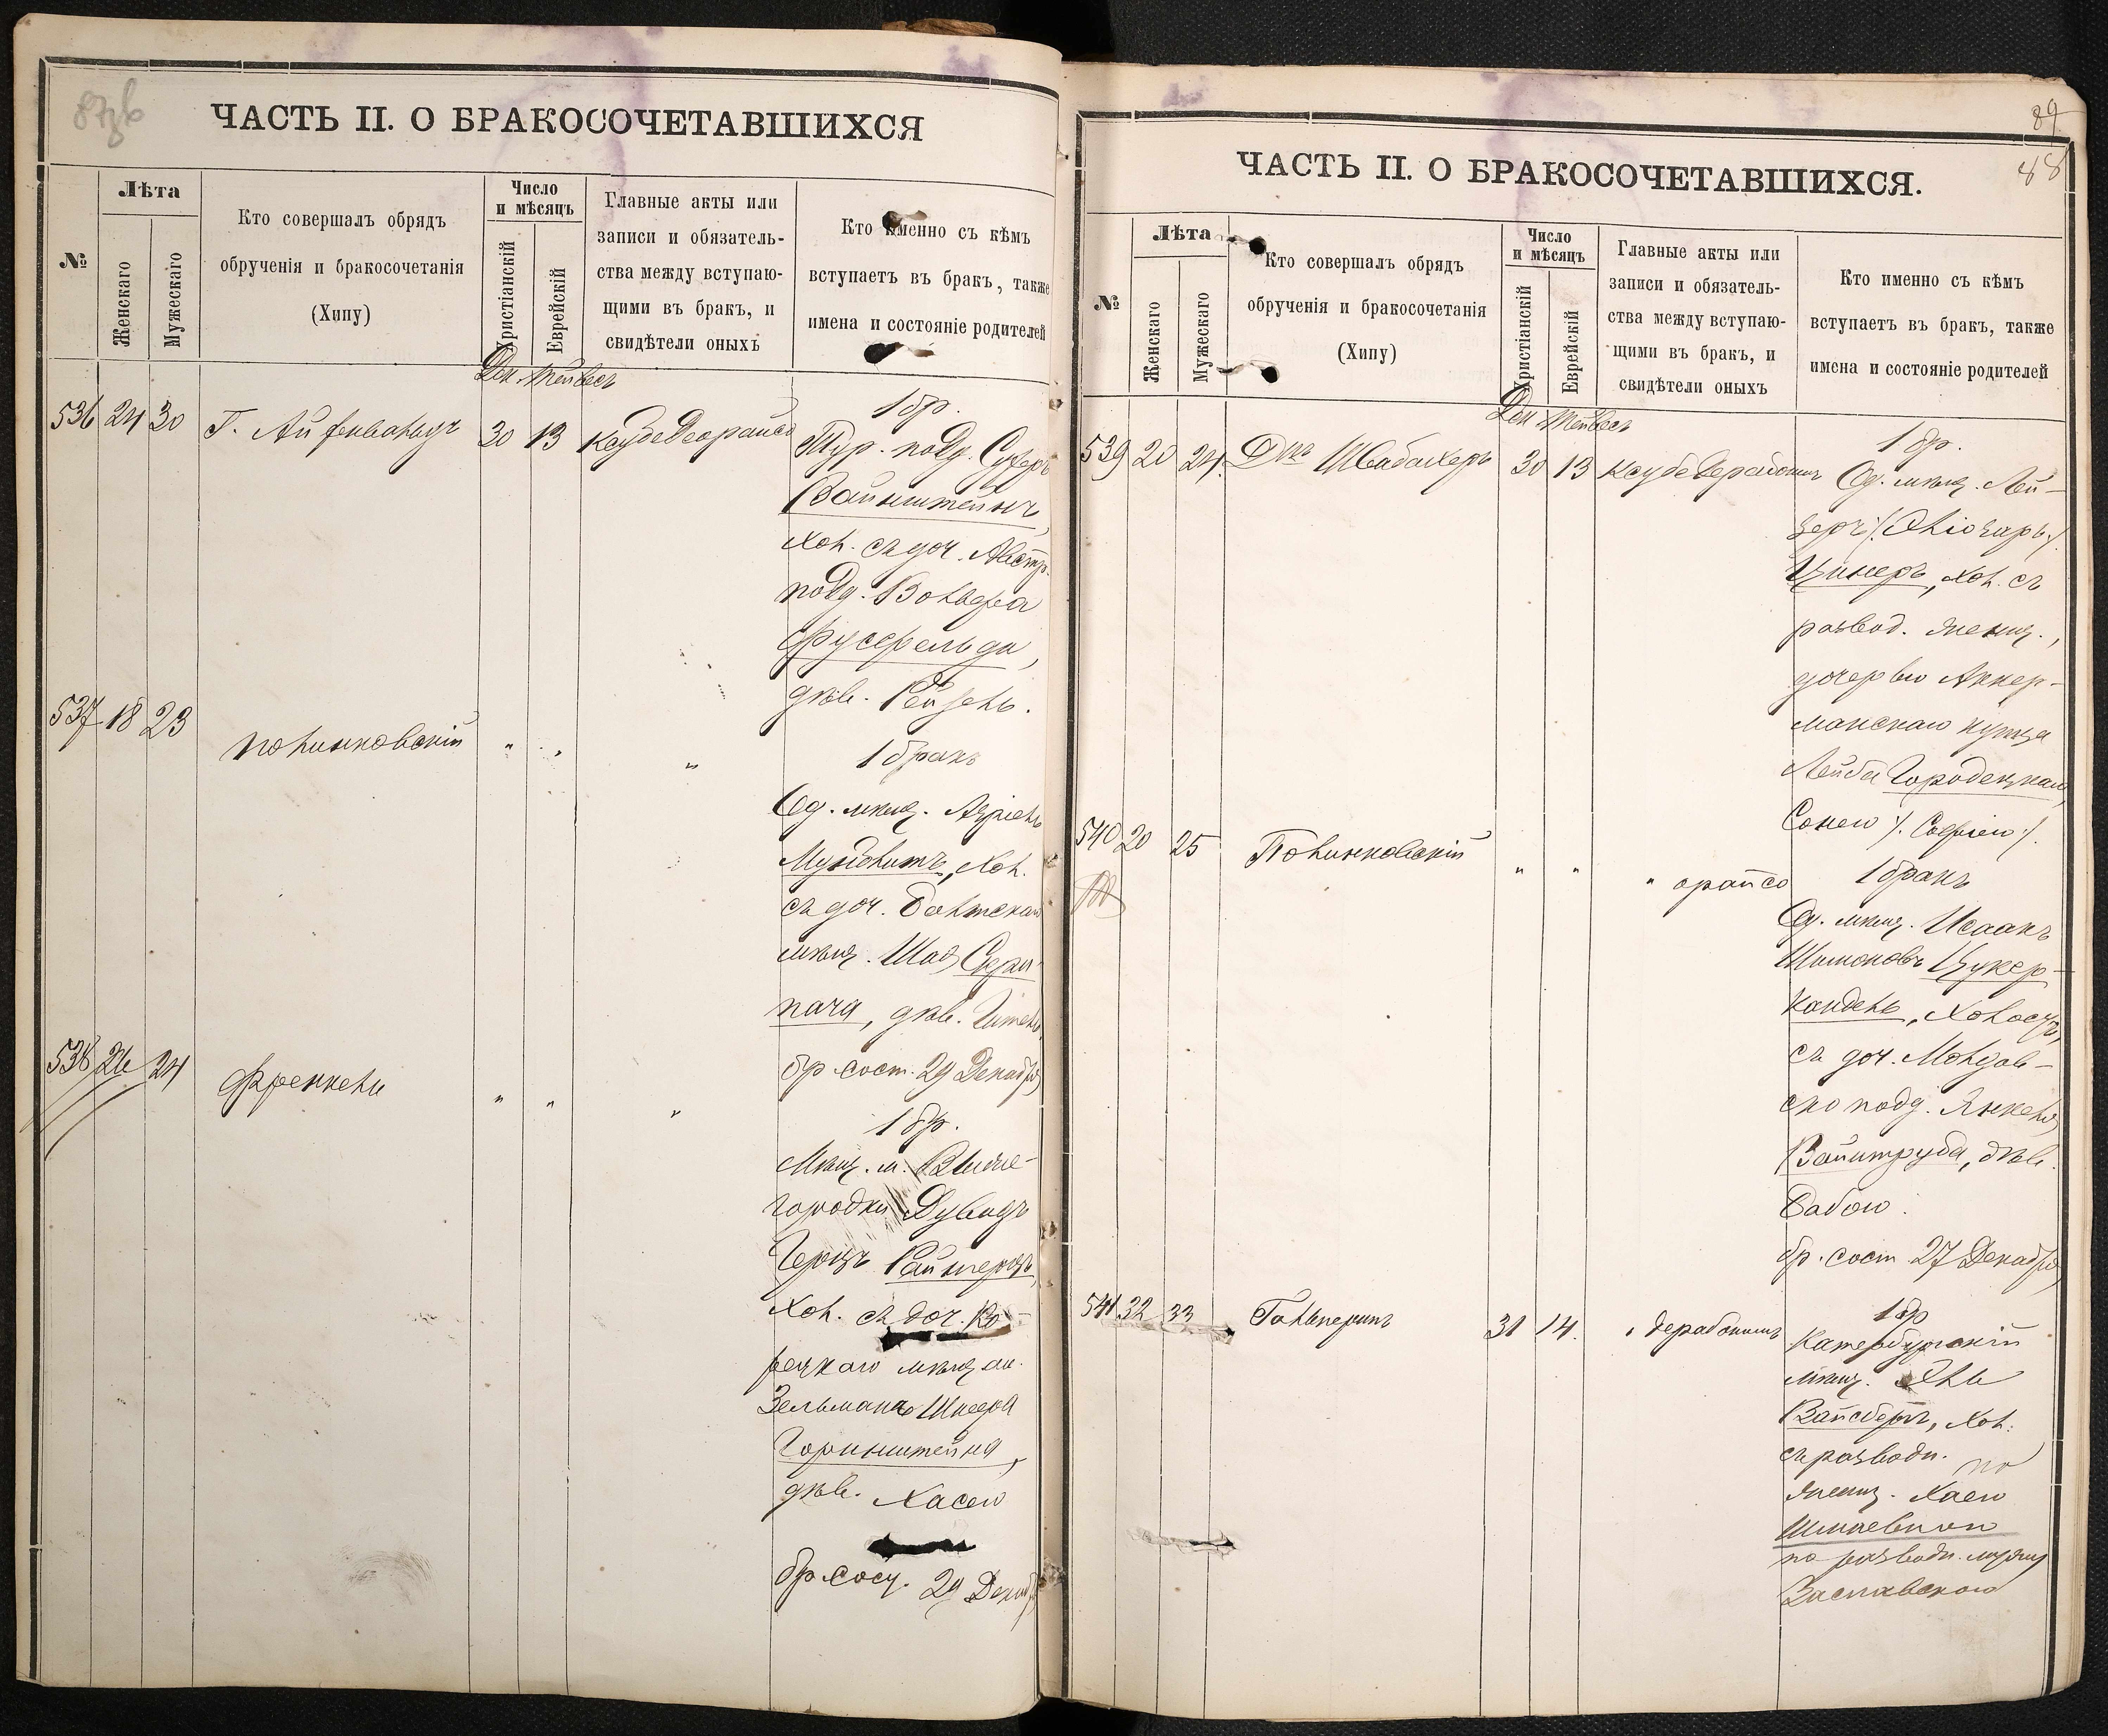 ЧАСТЬ II. О БРАКОСОЧЕТАВШИХСЯ
№
Лѣта
Женскаго
Мужескаго
Кто совершалъ обрядъ
обрученія и бракосочетанія
(Хипу)
Число
и мѣсяцъ
Христіанскій
Еврейскій
Главные акты или
записи и обязатель-
ства между вступаю-
щими въ бракъ, и
свидѣтели оныхъ
Кто именно съ кѣмъ
вступаетъ въ бракъ, также
имена и состояніе родителей
Дек. Тейвесъ
536 24 30 Г. 30 13
1 бр.
Тур. подд. Сухеръ
Вайнштейнъ,
хол. съ доч. Австр.
подд. Вольфа
Фусфельда,
дѣв. Рейзель.
537 18 23 Полинковскій " " "
1 бракъ
Од. мѣщ. Азріель
хол.
съ доч. Балтскаго
мѣщ.
дѣв.
бр. сост. 29 Декабря
538 26 24 Френкель " " "
1 бр.
Мѣщ. м. Выше-
городки Дувидъ
Герцъ
хол. съ доч. Ко-
рецкаго мѣщан.
Зельмана
Горинштейна,
дѣв. Хасею
бр. сост. 29 Декаб.
89
88
ЧАСТЬ II. О БРАКОСОЧЕТАВШИХСЯ.
№
Лѣта
Женскаго
Мужескаго
Кто совершалъ обрядъ
обрученія и бракосочетанія
(Хипу)
Число
и мѣсяцъ
Христіанскій
Еврейскій
Главные акты или
записи и обязатель-
ства между вступаю-
щими въ бракъ, и
свидѣтели оныхъ
Кто именно съ кѣмъ
вступаетъ въ бракъ, также
имена и состояніе родителей
Дек Тейвесъ
539 20 24 Дръ Швабахеръ 30 13
1 бр.
Од. мѣщ. Лей-
Цинеръ, хол. съ
развод. женщ.,
дочерью Аккер-
манскаго купца
Лейба Городецкаго,
Сонею /. Софіею /.
540 20 25 Полинковскій " " " орайсо
1 бракъ
Од. мѣщ. Исаакъ
Шимоновъ Цукер-
кандель, холост,
съ доч. Молдав-
ско подд. Янкеля
Вайнтруба, дѣв.
Бабою.
бр. сост. 27 Декабря
541 32 33 Гальперинъ 31 14. " дерабонимъ
1 бр
Катербургскій
мѣщ.
Вайсбергъ, хол.
съ разводн.
женщ. Хаею
по разводн. мужу
Заславскою